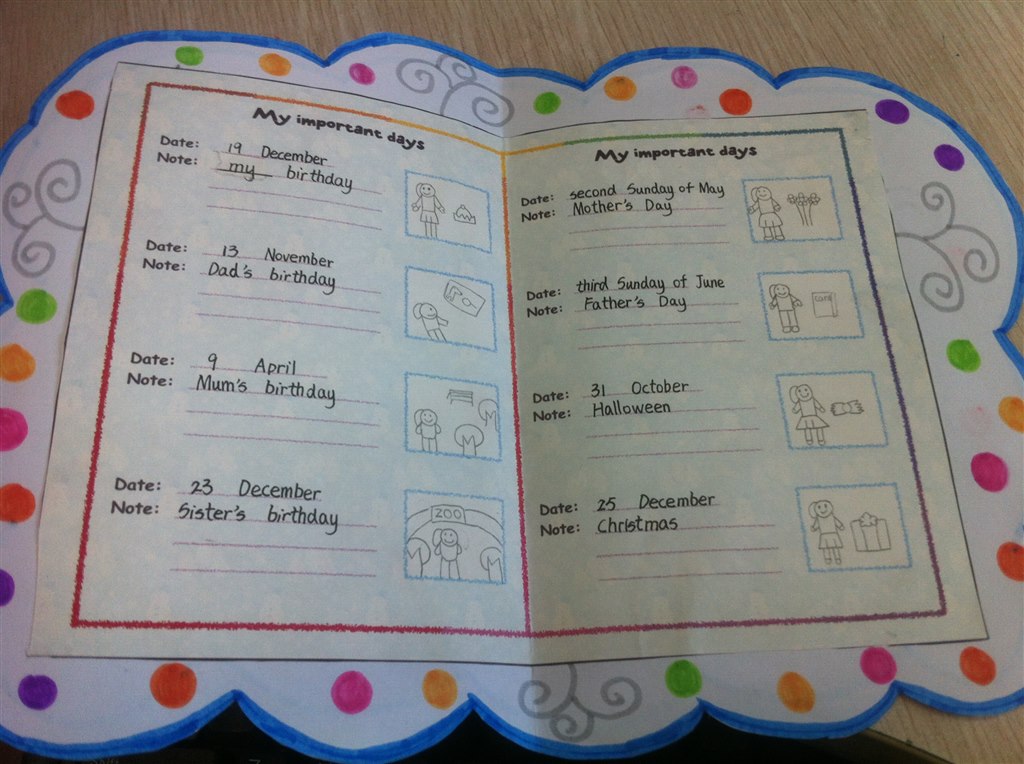 My important days
Date: 19 December
Note: my birthday
Date: 13 November
Note: Dad's birthday
Date: 9 April
Note: Mum's birthday
Date: 23 December
Note: Sister's birthday
ZOO
My important days
Date: second Sunday of May
Note: Mother's Day
Date: third Sunday of June
Note: Father's Day
card
Date: 31 October
Note: Halloween
Date: 25 December
Note: Christmas